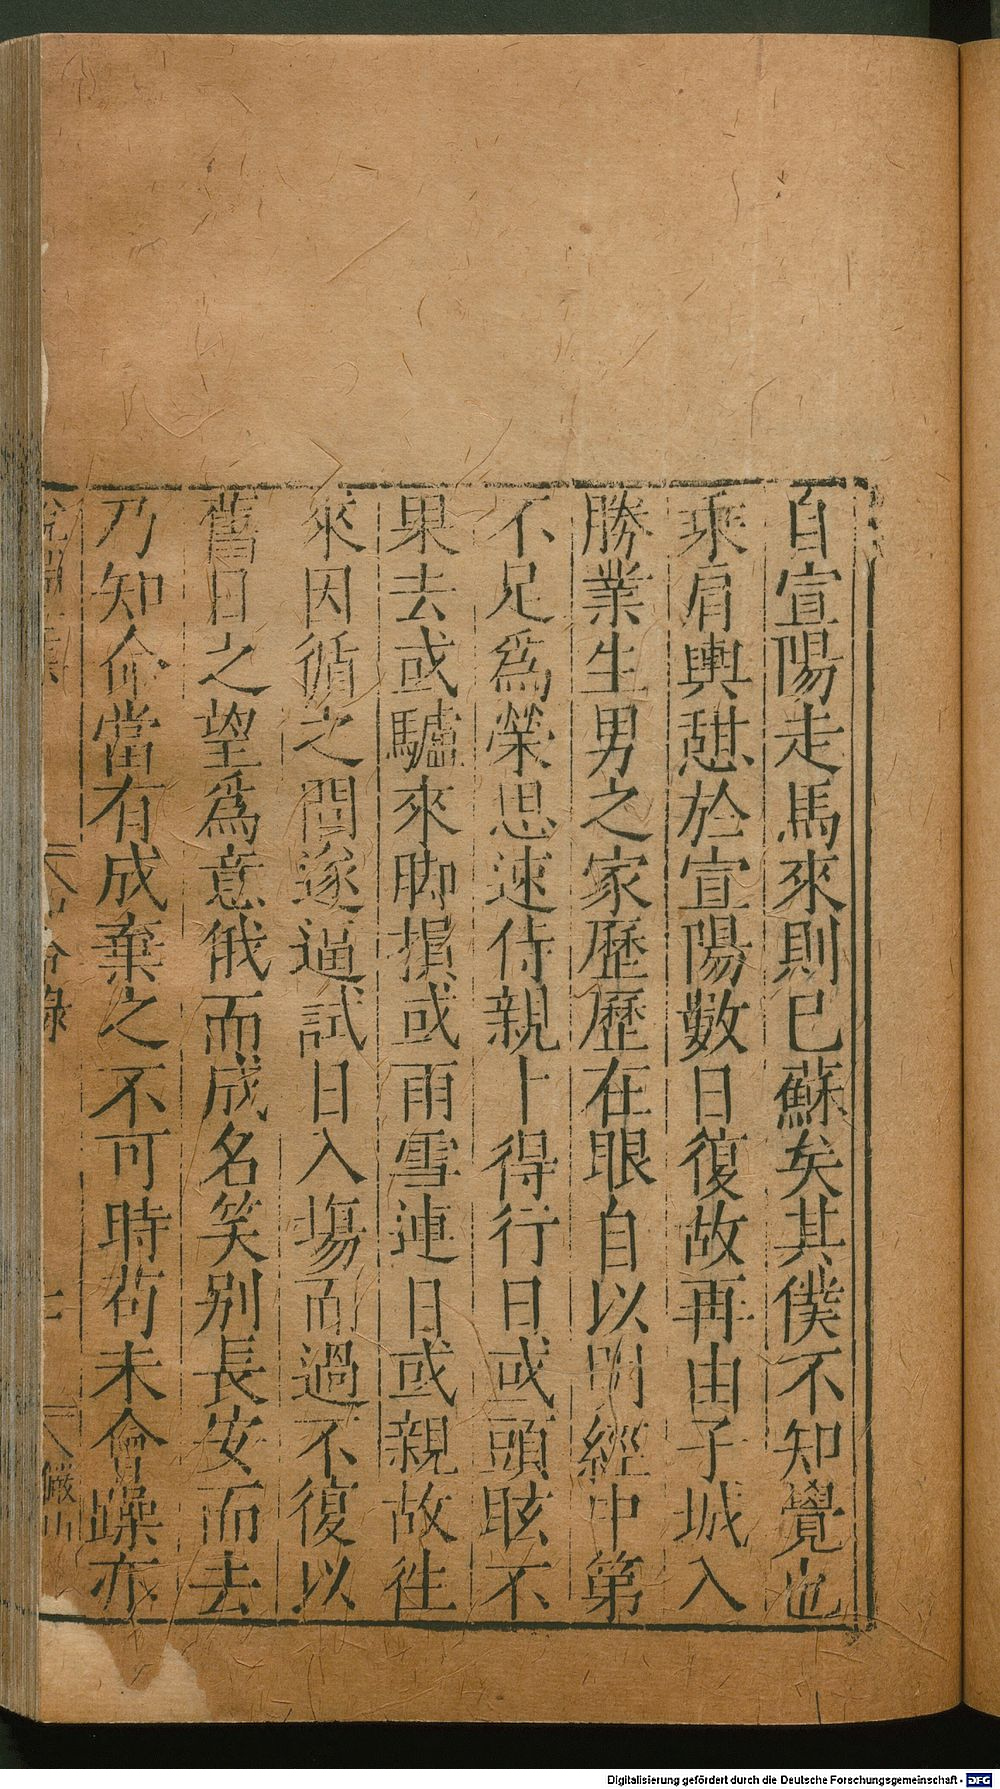 自宣陽走馬來則已蘇矣其僕不知覺也
乘肩輿憩於宣陽數日復故再由子城入
勝業生男之家歷歷在眼自以明經中第
不足爲榮思速侍親卜得行日或頭眩不
果去或驢來脚損或雨雪連日或親故往
來因循之間遂逼試日入塲而過不復以
舊日之望爲意俄而成名笑别長安而去
乃知命當有成棄之不可時苟未會躁亦
說淵
錄
儼山
Digitalisierung gefördert durch die Deutsche Forschungsgemeinschaft - DFG